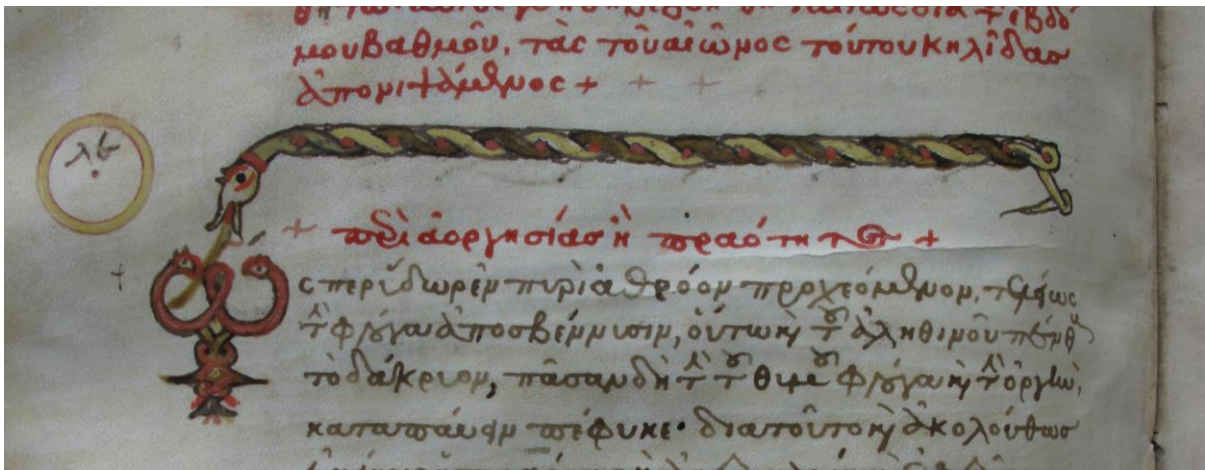 μου βαθμοῦ, τὰς τοῦ αἰῶνος τούτου κηλίδας
ἀπονιψάμενος +
λβ
+ περὶ ἀοργησίας ἢ πραότητος +
ὡς περ ὕδωρ ἐν πυρὶ ἀθρόον προχεόμενον, τελέως
τὴν φλόγα ἀποσβέννυσιν, οὕτω καὶ τοῦ ἀληθινοῦ πένθους
τὸ δάκρυον, πᾶσαν δὴ τὴν τοῦ θυμοῦ φλόγα καὶ τὴν ὀργὴν,
καταπαύειν πέφυκε· διὰ τοῦτο καὶ ἀκολούθως